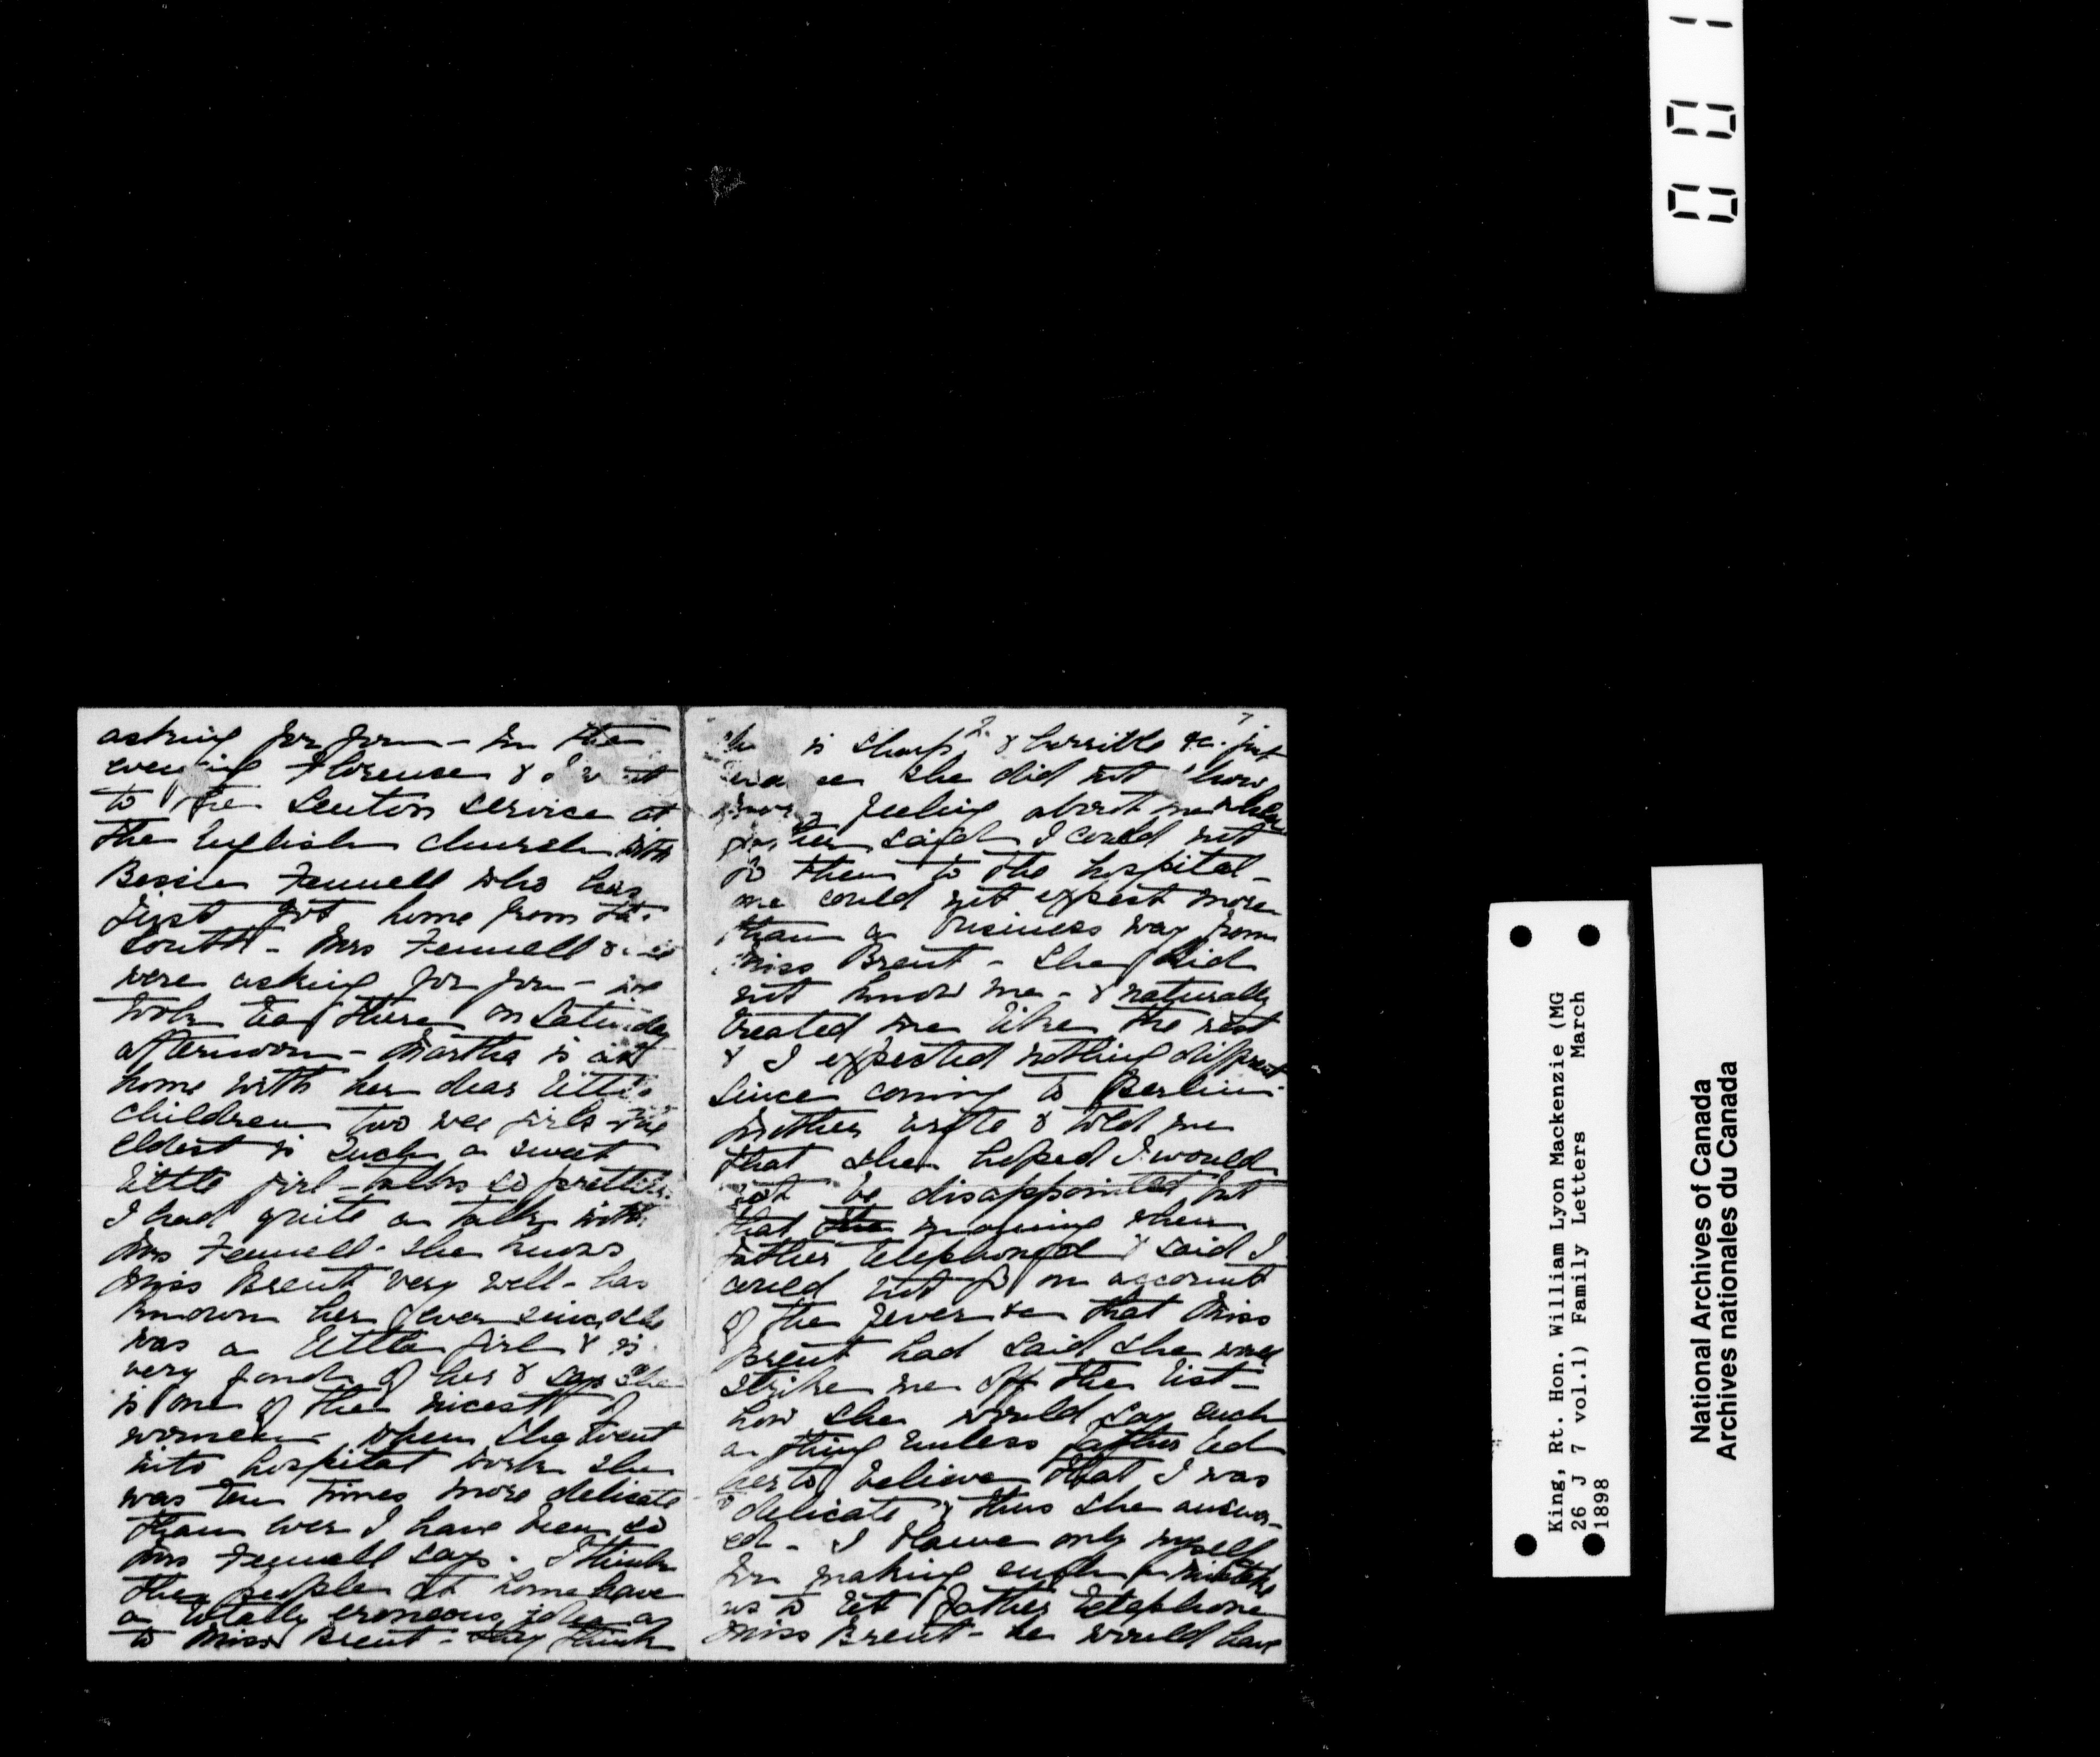 asking for you - In the
evening Florence & I went
to the Lenton service at
the English church with
Bessie Fennell who has
just got home from the
South - Mrs Fennell &
were asking for you - we
took tea there on Saturday
afternoon - Martha is at
home with her dear little
children two wee girls - the
eldest is such a sweet
little girl - talks so prettily.
I had quite a talk with
Mrs Fennell - she knows
Miss Brent very well - has
known her ever since she
was a little girl & is
very fond of her & says she
is one of the nicest of
women - when she went
into hospital work she
was ten times more delicate
than ever I have been so
Mrs Fennell says. I think
the people at home have
a totally eroneous idea as
to Miss Brent - they think
2.
she is sharp, & horrible &c. just
because she did not show
more feeling about me when
father said I could not
go then to the hospital -
one could not expect more
than a business way from
Miss Brent - she did
not know me - & naturally
treated me like the rest
& I expected nothing different
Since coming to Berlin
Mother wrote & told me
that she hoped I would
not be disappointed but
that the morning when
Father telephoned & said I
could not go on account
of the fever &c that Miss
Brent had said she would
strike me off the list -
how she would say such
a thing unless father led
her to believe that I was
delicate & thus she answer-
ed - I blame only myself
for making such a mistake
as to let father telephone
Miss Brent - he would have
001
King, Rt. Hon. William Lyon Mackenzie (MG
26 J 7 vol.1) Family Letters March
1898
National Archives of Canada
Archives nationales du Canada